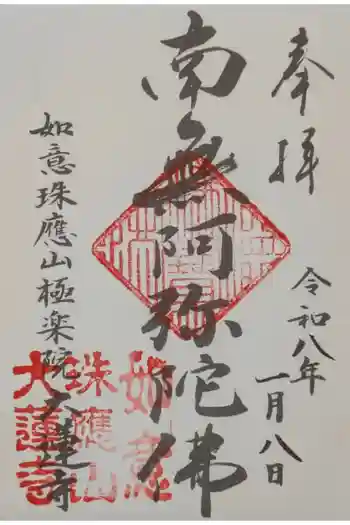 奉拝
令和八年
一月八日
南無阿弥陀佛
如意珠應山極楽院
大蓮寺
如意
珠應山
大蓮寺